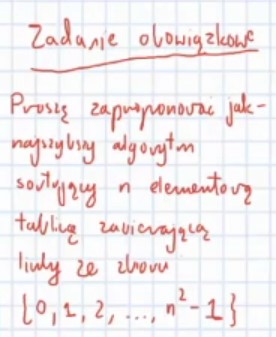 Zadanie obowiązkowe
Proszę zaproponować jak-
najszybszy algorytm
sortujący n elementową
tablicę zawierającą
liczby ze zbioru
{0, 1, 2, ..., n²-1}